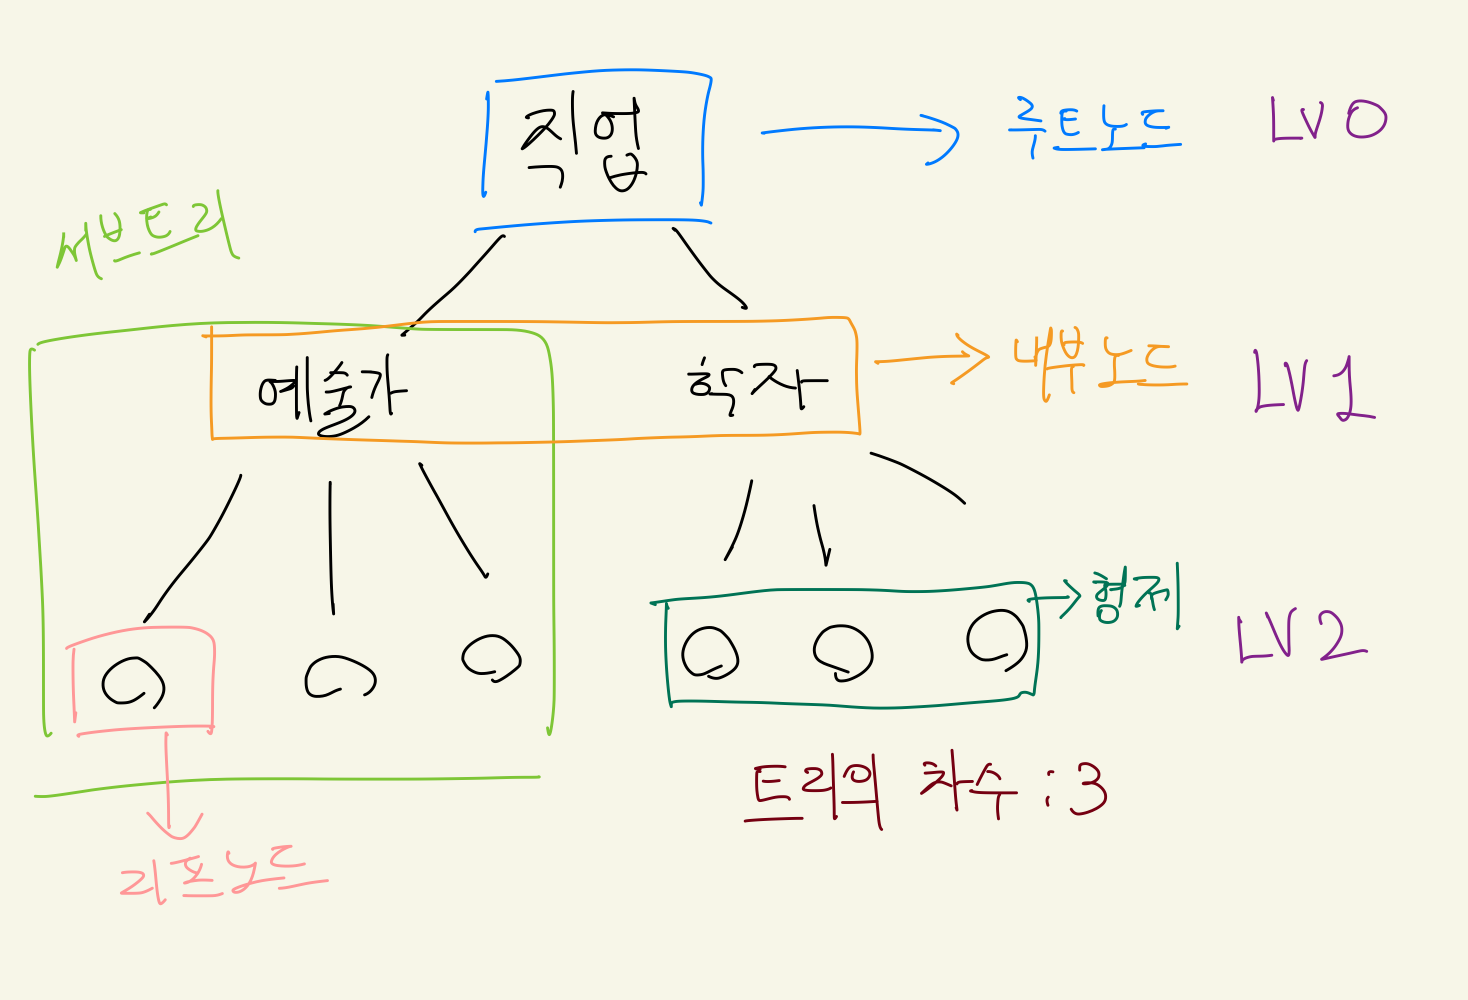 직업
루트노드
LV 0
서브트리
예술가
학자
내부노드
LV 1
형제
LV 2
트리의 차수 : 3
리프노드